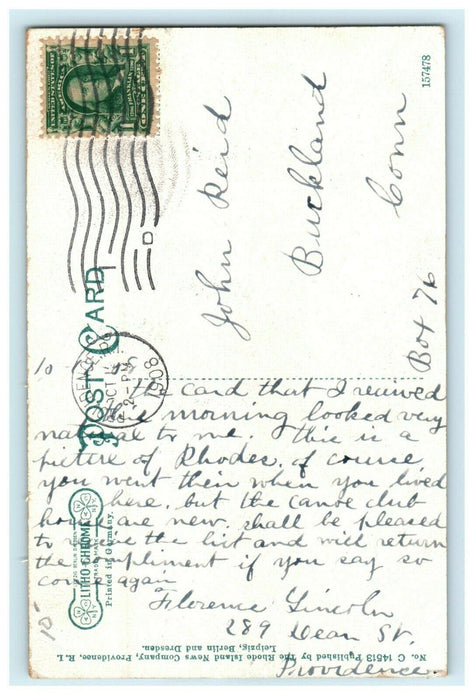 UNITED STATES OF AMERICA
FRANKLIN
ONE CENT
157478
POST CARD
PROVIDENCE, R.I.
OCT
1908
D
John Reid
Buckland
Conn
Box 76
the card that I reiived
this morning looked very
natural to me. This is a
picture of Rhodes, of course
you went thier when you lived
here, but the canoe club
houses are new. shall be pleased
to receive the list and will return
the compliment if you say so
come again
Florence Lincoln
289 Dean St.
Providence.
LITHO-CHROME
Printed in Germany.
No. C 14513 Published by The Rhode Island News Company, Providence, R. I.
Leipzig, Berlin and Dresden.
10-